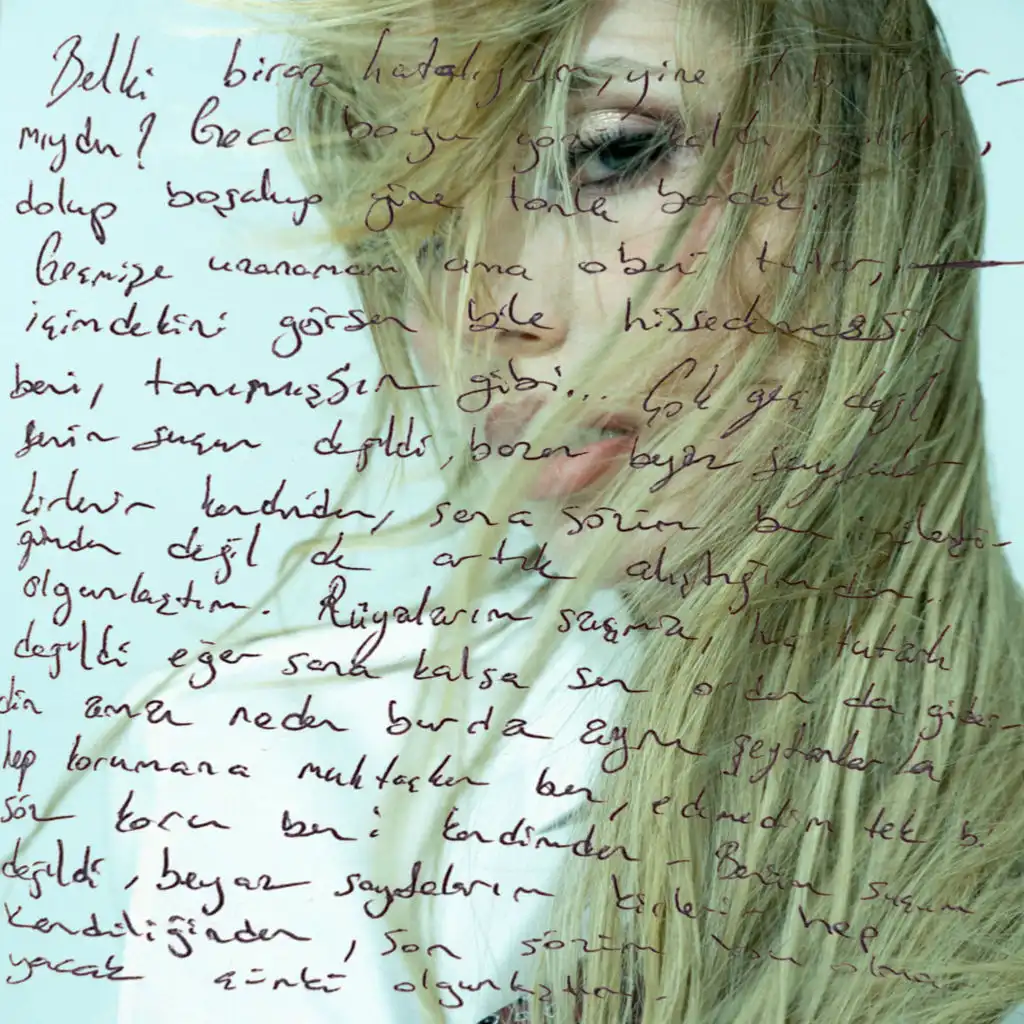 Belki biraz hatalıydım, yine
mıydın? Gece boyu
dolup boşalıp yine bardak..
Geçmişe uzanamam ama
içimdekini görsen bile hissedemezsin
beni, tanımışsın gibi... Çok geç değil
senin suçun değildi, bazen beyaz sayfalar
kirlenir kendinden, sana sözüm
ğinden değil de artık alıştığımdan..
olgunlaştım. Rüyalarım saçma, hiç tutarlı
değildi eğer sana kalsa sen ordan da gider-
din ama neden burda aynı şeytanlarla
hep korumana muhtaçken ben, edemedim tek bi
söz koru beni kendimden - Benim suçum
değildi, beyaz sayfalarım kirlenir hep
kendiliğinden, son sözüm olma
yacak çünkü olgunlaştım.